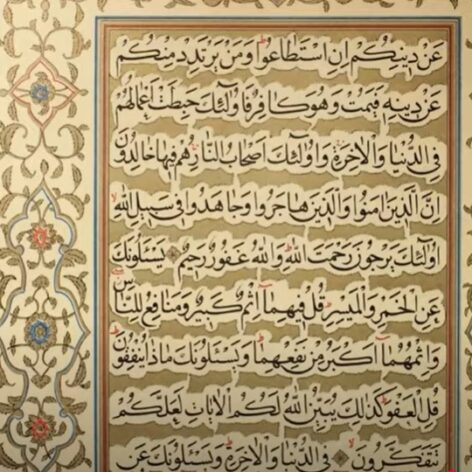 عَنْ دِينِكُمْ إِنِ اسْتَطَاعُوا وَمَنْ يَرْتَدِدْ مِنْكُمْ
عَنْ دِينِهِ فَيَمُتْ وَهُوَ كَافِرٌ فَأُولَٰئِكَ حَبِطَتْ أَعْمَالُهُمْ
فِي الدُّنْيَا وَالْآخِرَةِ وَأُولَٰئِكَ أَصْحَابُ النَّارِ هُمْ فِيهَا خَالِدُونَ
إِنَّ الَّذِينَ آمَنُوا وَالَّذِينَ هَاجَرُوا وَجَاهَدُوا فِي سَبِيلِ اللَّهِ
أُولَٰئِكَ يَرْجُونَ رَحْمَتَ اللَّهِ وَاللَّهُ غَفُورٌ رَحِيمٌ يَسْئَلُونَكَ
عَنِ الْخَمْرِ وَالْمَيْسِرِ قُلْ فِيهِمَا إِثْمٌ كَبِيرٌ وَمَنَافِعُ لِلنَّاسِ
وَإِثْمُهُمَا أَكْبَرُ مِنْ نَفْعِهِمَا وَيَسْئَلُونَكَ مَاذَا يُنْفِقُونَ
قُلِ الْعَفْوَ كَذَٰلِكَ يُبَيِّنُ اللَّهُ لَكُمُ الْآيَاتِ لَعَلَّكُمْ
تَتَفَكَّرُونَ فِي الدُّنْيَا وَالْآخِرَةِ وَيَسْئَلُونَكَ عَنِ